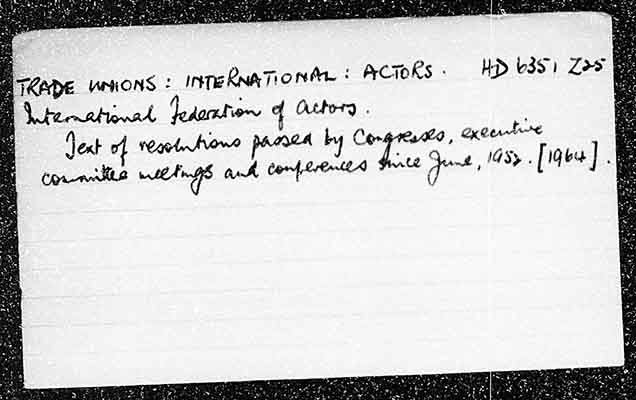 TRADE UNIONS: INTERNATIONAL: ACTORS. HD 6351 Z25
International Federation of Actors.
Text of resolutions passed by Congresses, executive
committee meetings and conferences since June, 1952. [1964].